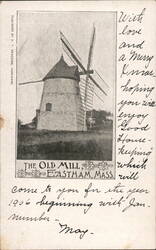 THE OLD MILL,
EASTHAM, MASS.
With
love
and
a Merry
Xmas
hoping
you are
enjoy
Good
House-
keeping
which
will
come to you for the year
1906 beginning with Jan.
number -
May.